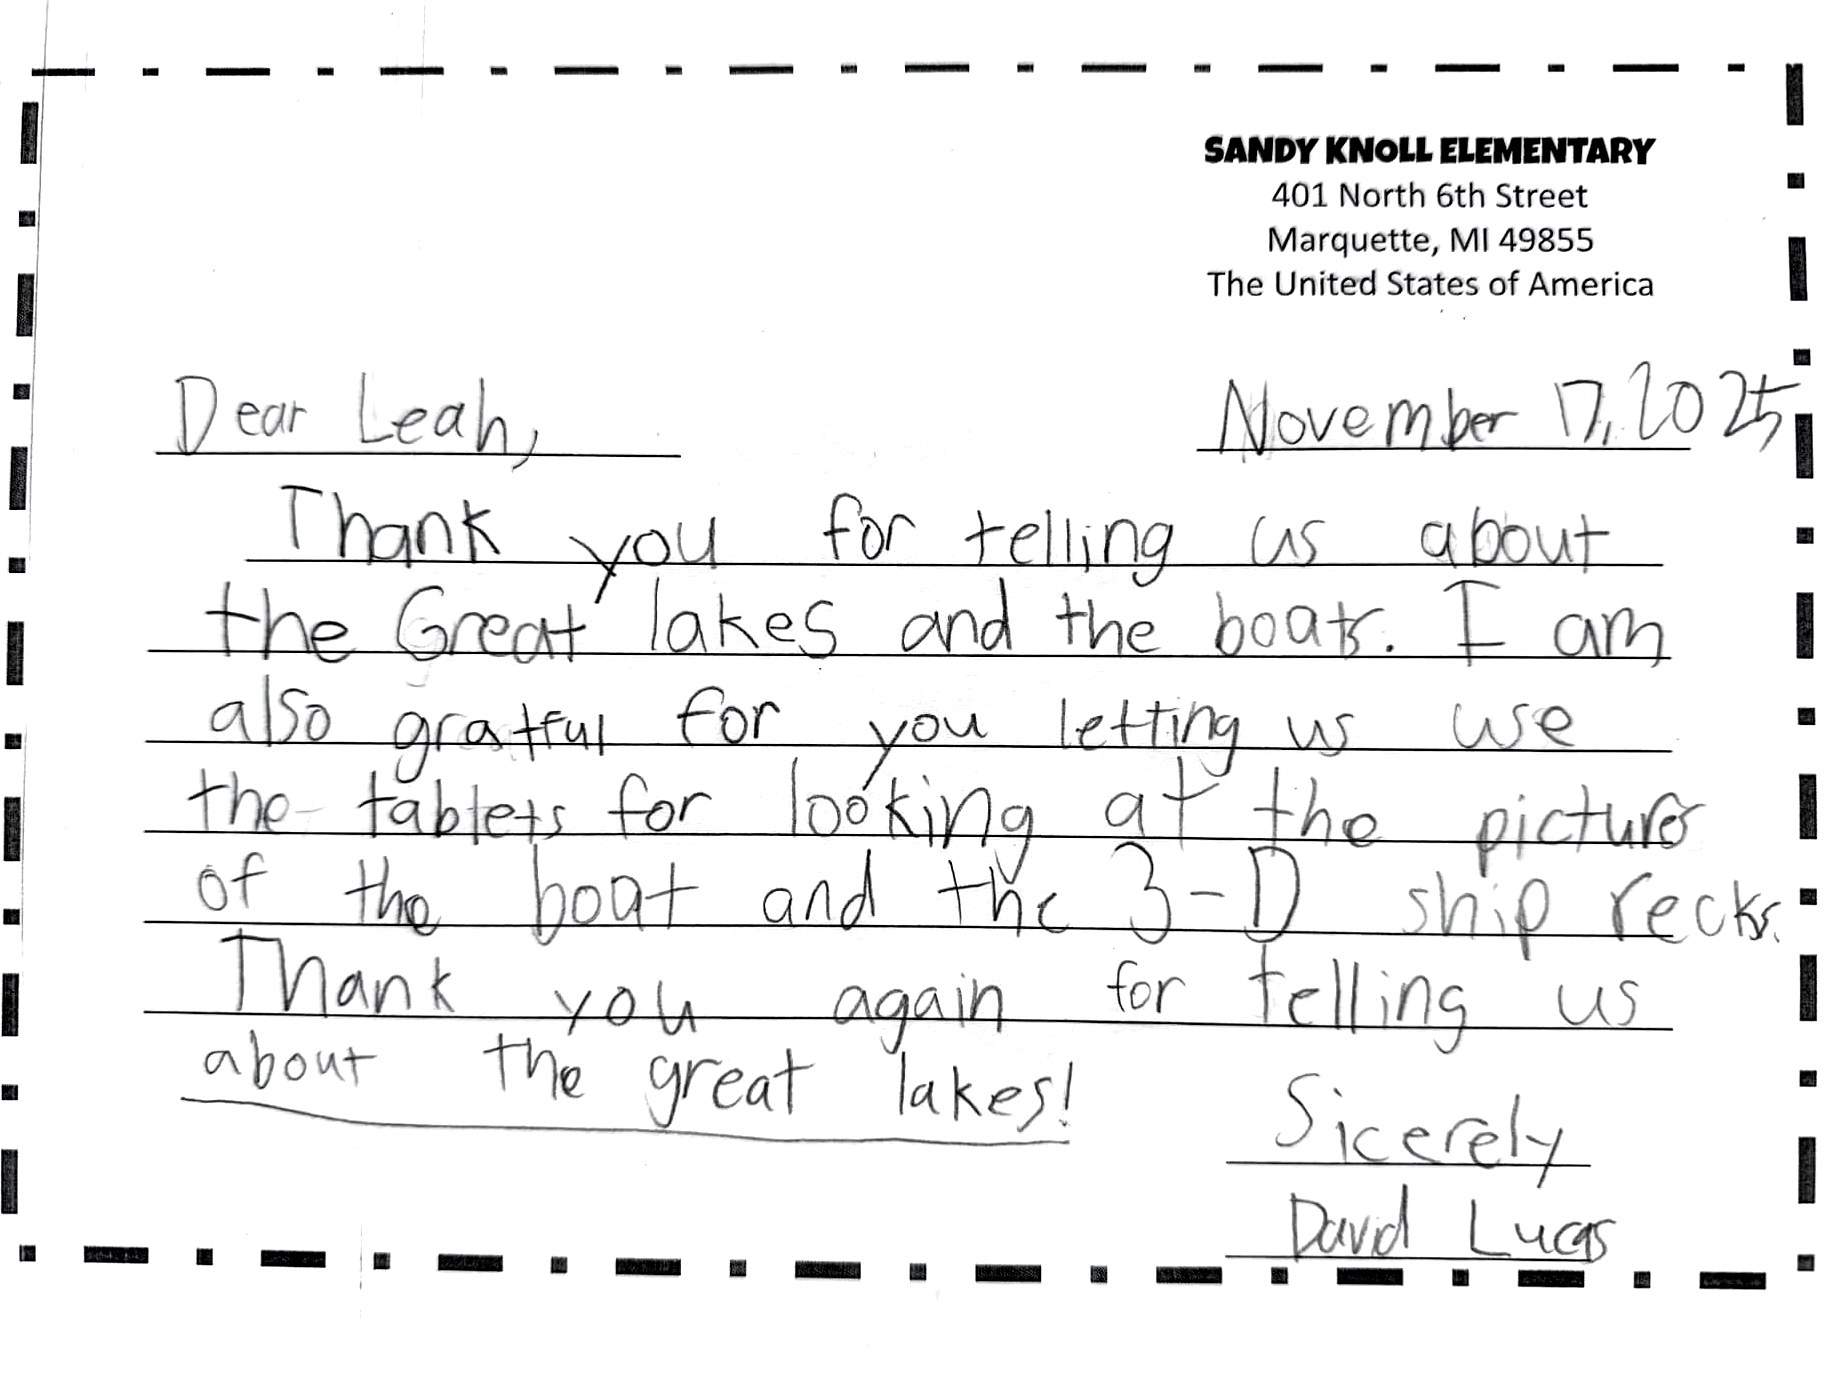 SANDY KNOLL ELEMENTARY
401 North 6th Street
Marquette, MI 49855
The United States of America
Dear Leah, November 17, 2025
Thank you for telling us about
the Great lakes and the boats. I am
also gratful for you letting us use
the tablets for looking at the picturs
of the boat and the 3-D ship recks.
Thank you again for telling us
about the great lakes!
Sicerely
David Lucas